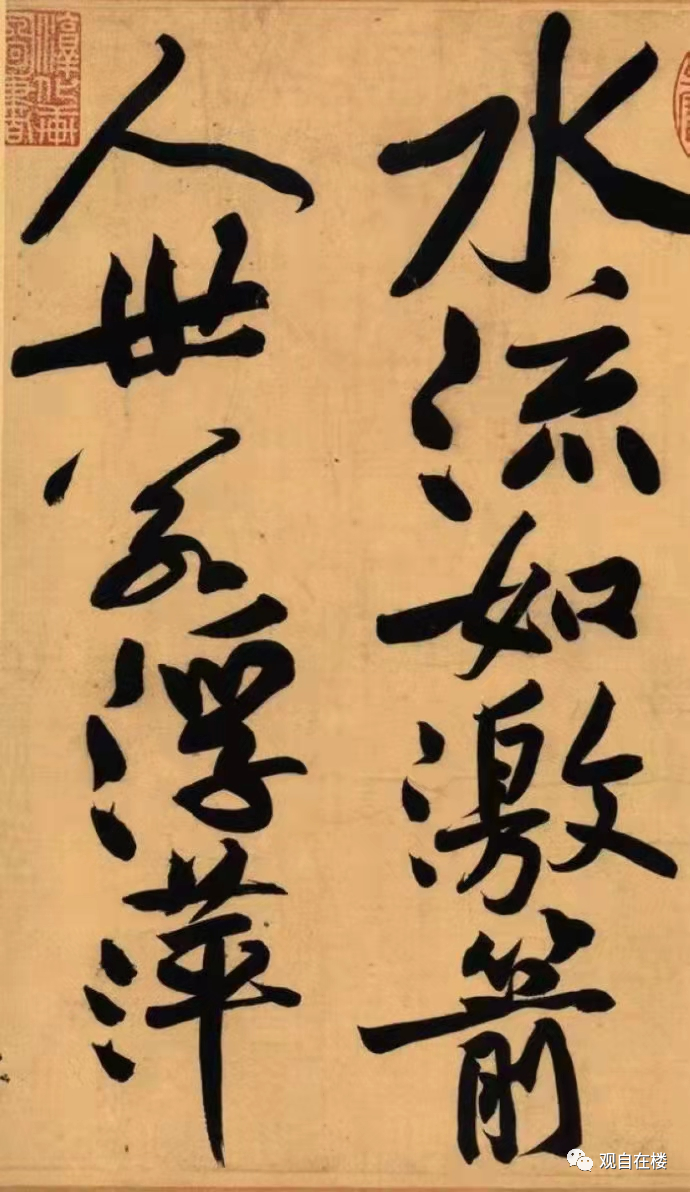 水流如激箭
人世若浮萍
观自在楼